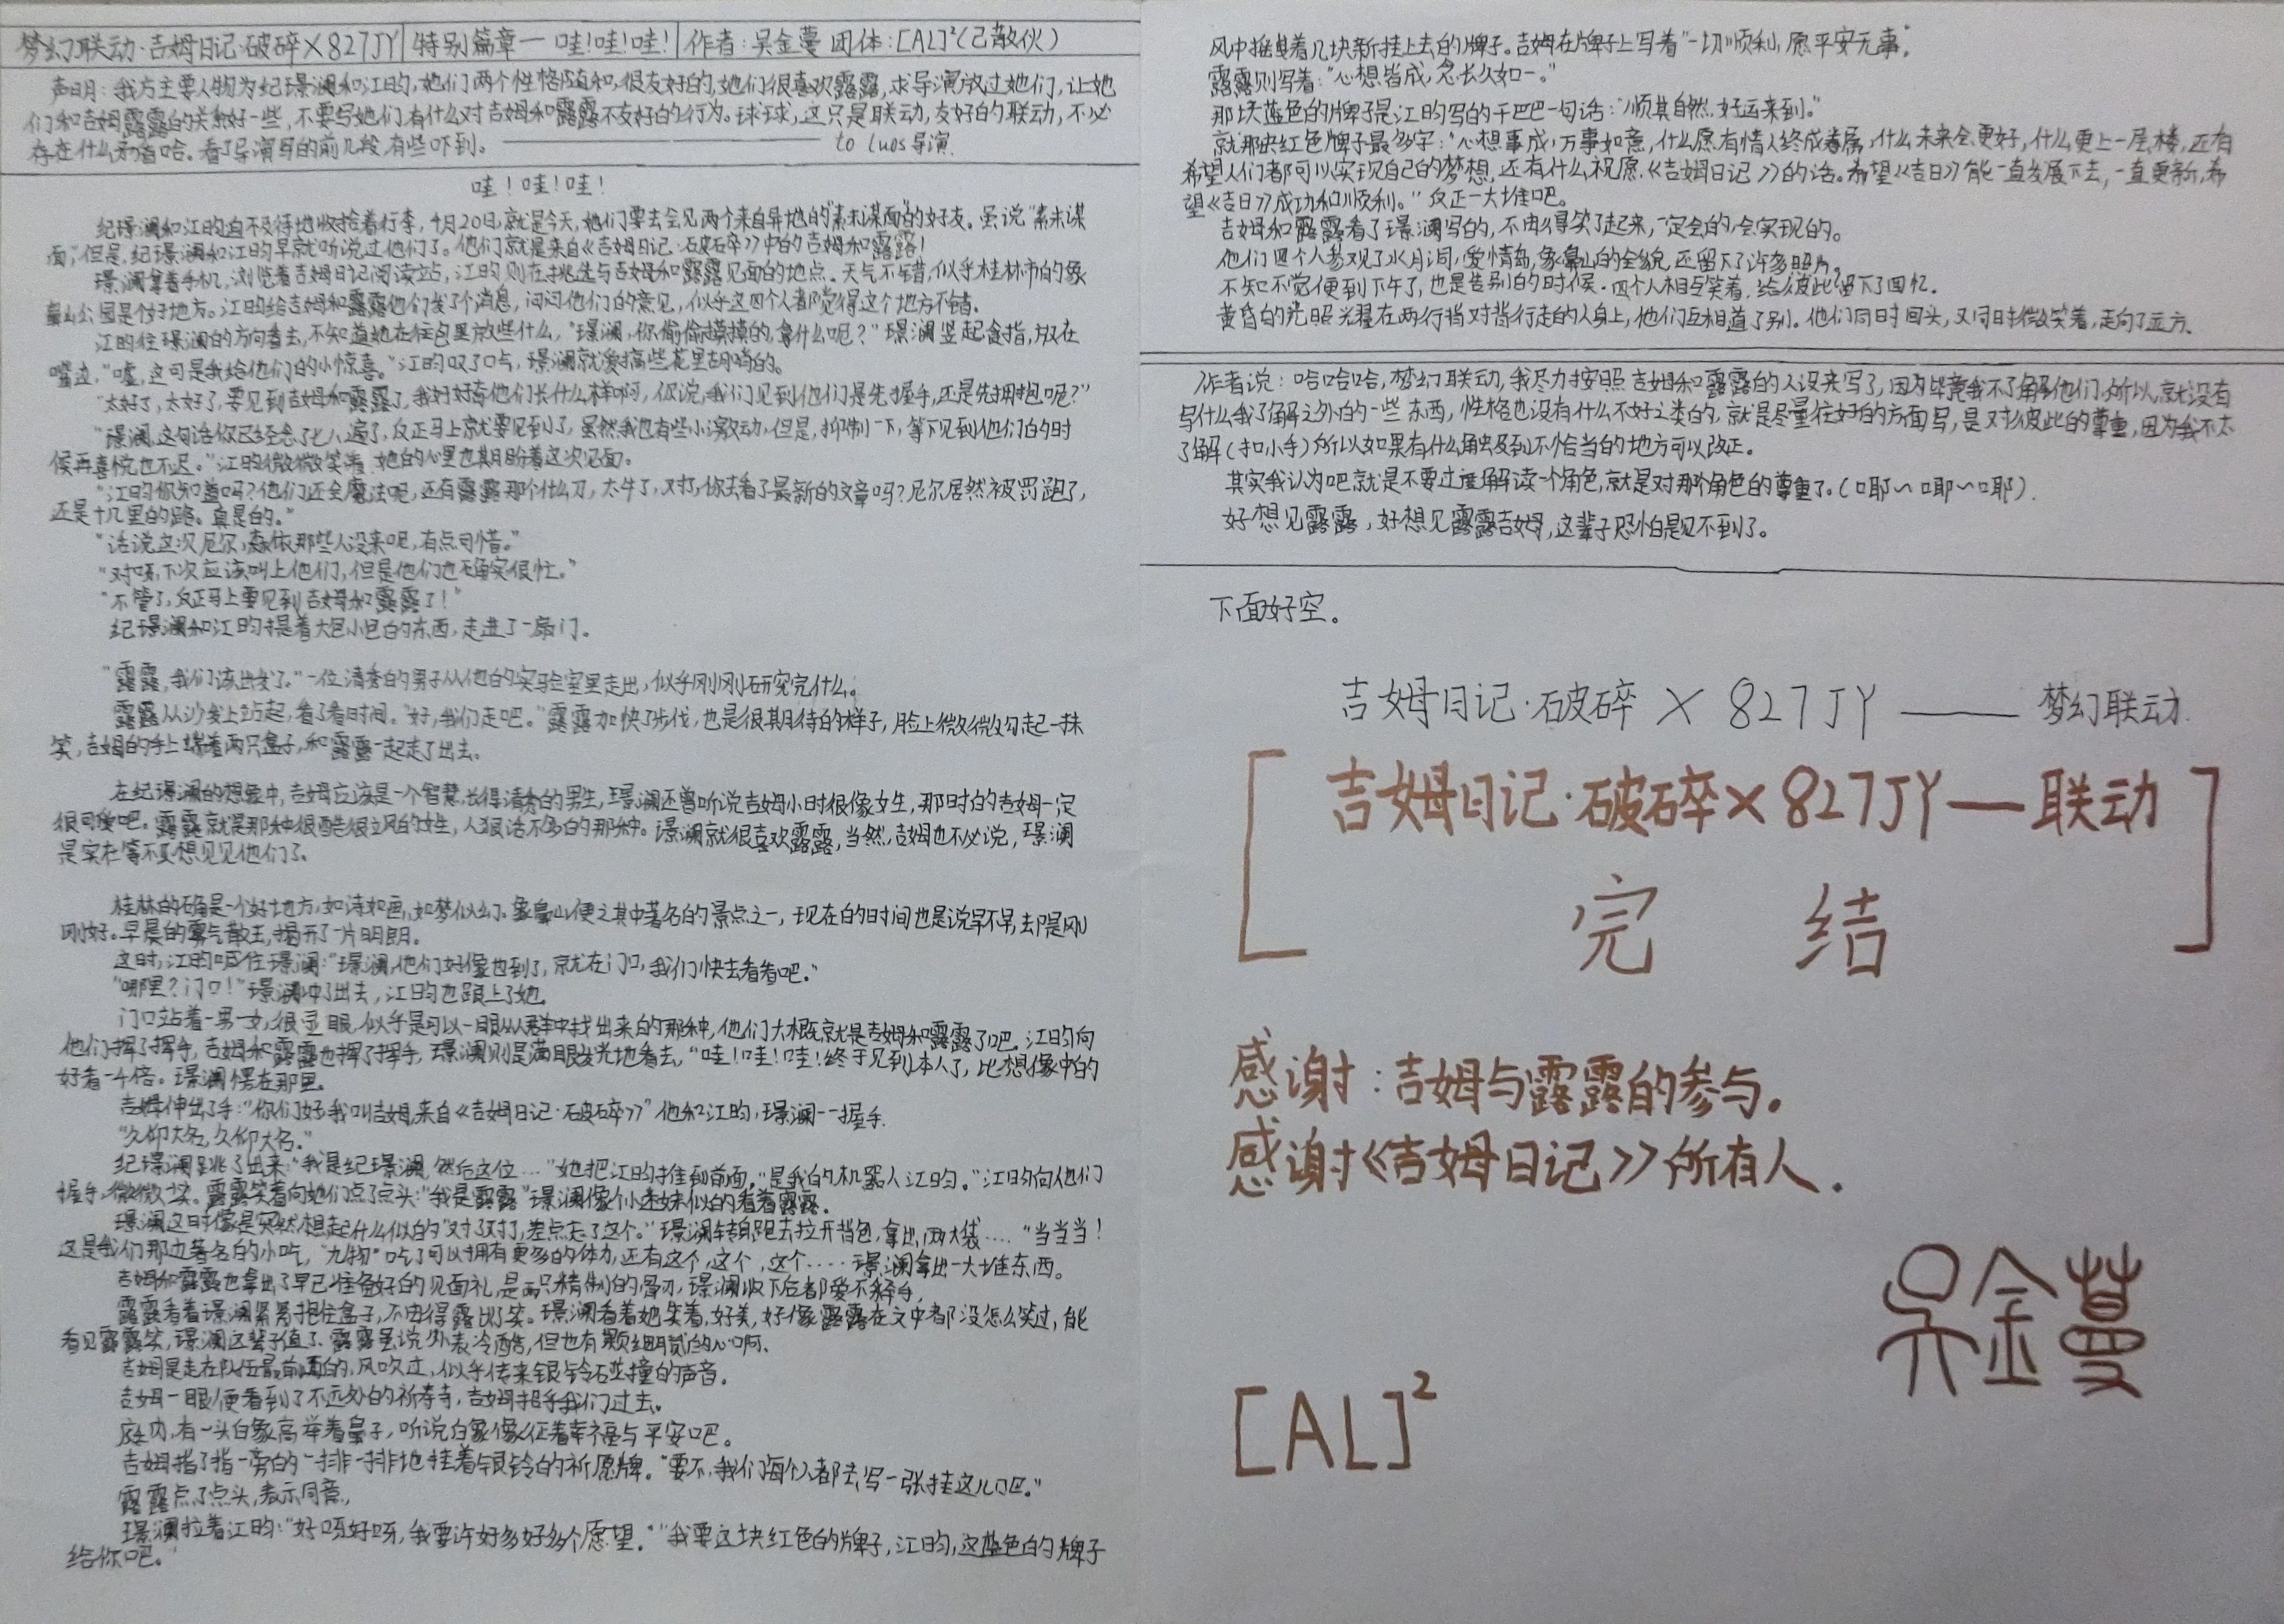 梦幻联动·吉姆日记·破碎×827JY|特别篇章— 哇!哇!哇!|作者:吴金蔓 团体:[AL]²(已散伙)
声明:我方主要人物为纪璟澜和江昀,她们两个性格随和,很友好的,她们很喜欢露露,求导演放过她们,让她
们和吉姆露露的关系好一些,不要写她们有什么对吉姆和露露不友好的行为。球球,这只是联动,友好的联动,不必
存在什么利益哈。看了导演写的前几段,有些吓到。——————to luos导演
哇!哇!哇!
纪璟澜和江昀迫不及待地收拾着行李,4月20日,就是今天,她们要去会见两个来自异地的"素未谋面"的好友。虽说"素未谋
面",但是,纪璟澜和江昀早就听说过他们了。他们就是来自《吉姆日记·破碎》中的吉姆和露露!
璟澜拿着手机,浏览着吉姆日记阅读站,江昀则在挑选与吉姆和露露见面的地点。天气不错,似乎桂林市的象
鼻山公园是个好地方。江昀给吉姆和露露他们发了个消息,问问他们的意见,似乎这四个人都觉得这个地方不错。
江昀往璟澜的方向看去,不知道她在往包里放些什么,"璟澜,你偷偷摸摸的,拿什么呢?"璟澜竖起食指,放在
嘴边,"嘘,这可是我给他们的小惊喜。"江昀叹了口气,璟澜就爱搞些花里胡哨的。
"太好了,太好了,要见到吉姆和露露了,我好好奇他们长什么样啊,你说,我们见到他们是先握手,还是先拥抱呢?"
"璟澜,这句话你已经念了七八遍了,反正马上就要见到了,虽然我也有些小激动,但是,抑制一下,等下见到他们的时
候再喜悦也不迟。"江昀微微笑着,她的心里也期盼着这次见面。
"江昀你知道吗?他们还会魔法呢,还有露露那个什么刀,太牛了,对了,你去看了最新的文章吗?尼尔居然被罚跑了,
还是十几里的路。真是的。"
"话说这次尼尔,森依那些人没来呢,有点可惜。"
"对呀,下次应该叫上他们,但是他们也确实很忙。"
"不管了,反正马上要见到吉姆和露露了!"
纪璟澜和江昀提着大包小包的东西,走进了一扇门。
"露露,我们该出发了。"一位清秀的男子从他的实验室里走出,似乎刚刚研究完什么。
露露从沙发上站起,看了看时间。"好,我们走吧。"露露加快了步伐,也是很期待的样子,脸上微微勾起一抹
笑,吉姆的手上端着两只盒子,和露露一起走了出去。
在纪璟澜的想象中,吉姆应该是一个智慧,长得清秀的男生,璟澜还曾听说吉姆小时很像女生,那时的吉姆一定
很可爱吧。露露就是那种很酷很立风的女生,人狠话不多的那种。璟澜就很喜欢露露,当然,吉姆也不必说,璟澜
是实在等不及想见见他们了。
桂林的确是一个好地方,如诗如画,如梦似幻。象鼻山便之其中著名的景点之一,现在的时间也是说早不早,却是刚
刚好。早晨的雾气散去,揭开了一片明朗。
这时,江昀喊住璟澜:"璟澜,他们好像也到了,就在门口,我们快去看看吧。"
"哪里?门口!"璟澜冲了出去,江昀也跟上了她。
门口站着一男一女,很显眼,似乎是可以一眼从人群中找出来的那种,他们大概就是吉姆和露露了吧。江昀向
他们挥了挥手,吉姆和露露也挥了挥手,璟澜则是满眼发光地看去,"哇!哇!哇!终于见到本人了,比想像中的
好看一千倍。璟澜愣在那里。
吉姆伸出了手:"你们好,我叫吉姆,来自《吉姆日记·破碎》"他和江昀,璟澜一一握手。
"久仰大名,久仰大名。"
纪璟澜跳了出来:"我是纪璟澜,然后这位…"她把江昀推到前面,"是我的机器人江昀。"江昀向他们
握手,微微笑。露露笑着向她们点了点头:"我是露露"璟澜像个小迷妹似的看着露露。
璟澜这时像是突然想起什么似的"对了对了,差点忘了这个。"璟澜转身跑去拉开背包,拿出两大袋…."当当当!
这是我们那边著名的小吃,"九物"吃了可以拥有更多的体力,还有这个,这个,这个····璟澜拿出一大堆东西。
吉姆和露露也拿出了早已准备好的见面礼,是两只精制的骨刃,璟澜收下后都爱不释手,
露露看着璟澜紧紧抱住盒子,不由得露出了笑。璟澜看着她笑着,好美,好像露露在文中都没怎么笑过,能
看见露露笑,璟澜这辈子值了。露露虽说外表冷酷,但也有颗细腻的心啊。
吉姆是走在队伍最前面的,风吹过,似乎传来银铃碰撞的声音。
吉姆一眼便看到了不远处的祈寿寺,吉姆招手我们过去。
庭内,有一头白象高举着鼻子,听说白象像征着幸福与平安吧。
吉姆指了指一旁的一排一排地挂着银铃的祈愿牌。"要不,我们每个人都去写一张挂这儿吧。"
露露点了点头,表示同意,
璟澜拉着江昀:"好呀好呀,我要许好多好多个愿望。""我要这块红色的牌子,江昀,这蓝色的牌子
给你吧。"
风中摇曳着几块新挂上去的牌子。吉姆在牌子上写着"一切顺利,愿平安无事",
露露则写着:"心想皆成,念长久如一。"
那块蓝色的牌子是江昀写的干巴巴一句话:"顺其自然,好运来到。"
就那块红色牌子最多字:"心想事成,万事如意,什么愿有情人终成眷属,什么未来会更好,什么更上一层楼,还有
希望人们都可以实现自己的梦想,还有什么祝愿《吉姆日记》的话。希望《吉日》能一直发展下去,一直更新,希
望《吉日》成功和顺利。"反正一大堆吧。
吉姆和露露看了璟澜写的,不由得笑了起来,一定会的,会实现的。
他们四个人参观了水月洞,爱情岛,象鼻山的全貌,还留下了许多照片。
不知不觉便到下午了,也是告别的时候。四个人相互笑着,给彼此留下了回忆。
黄昏的光照光耀在两行背对背行走的人身上,他们互相道了别。他们同时回头,又同时微笑着,走向了远方。
作者说:哈哈哈,梦幻联动,我尽力按照吉姆和露露的人设来写了,因为毕竟我不了解他们,所以,就没有
写什么我了解之外的一些东西,性格也没有什么不好之类的,就是尽量往好的方面写,是对彼此的尊重,因为我不太
了解(扣小手)所以如果有什么触及到不恰当的地方可以改正。
其实我认为吧就是不要过度解读一个角色,就是对那个角色的尊重了。(耶~耶~耶)。
好想见露露,好想见露露吉姆,这辈子恐怕是见不到了。
下面好空。
吉姆日记·破碎 × 827JY —— 梦幻联动
[吉姆日记·破碎×827JY—联动
完 结]
感谢:吉姆与露露的参与。
感谢《吉姆日记》所有人.
吴金蔓
[AL]²